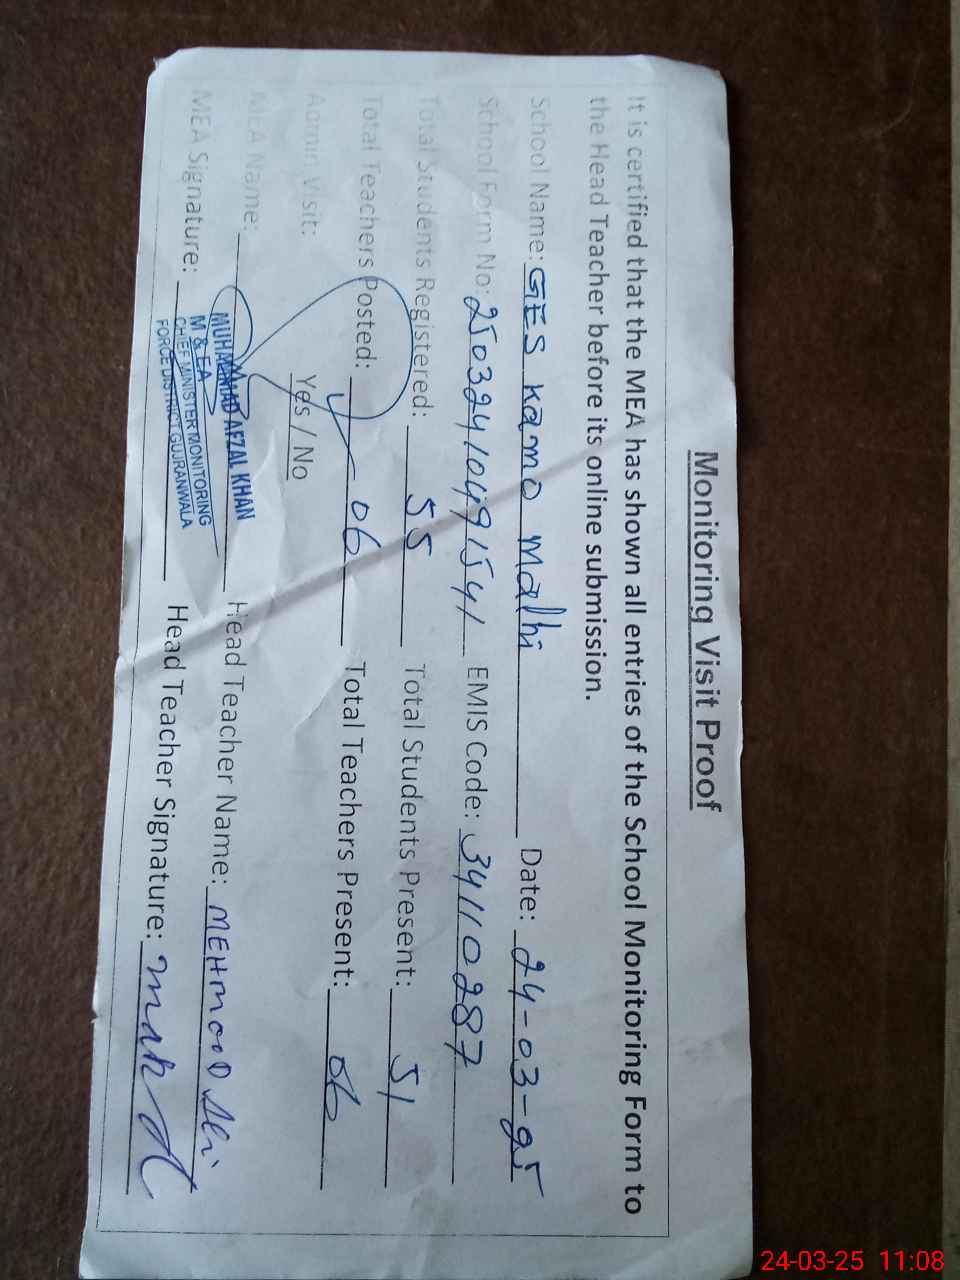 Monitoring Visit Proof
It is certified that the MEA has shown all entries of the School Monitoring Form to
the Head Teacher before its online submission.
School Name: GES Kamo Malhi Date: 24-03-25
School Form No: 25032410491541 EMIS Code: 34110287
Total Students Registered: 55 Total Students Present: 51
Total Teachers Posted: 06 Total Teachers Present: 06
Admin Visit: Yes / No
MEA Name: MUHAMMAD AFZAL KHAN Head Teacher Name: MEHMOOD Ali
M & EA
CHIEF MINISTER MONITORING
FORCE DISTRICT GUJRANWALA
MEA Signature: Head Teacher Signature:
24-03-25 11:08